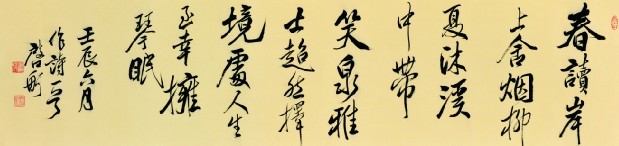 春讀岸
上含烟柳
夏沐溪
中帶
笑泉雅
士超然擇
境處人生
至幸擁
琴眠
壬辰六月
作詩一首